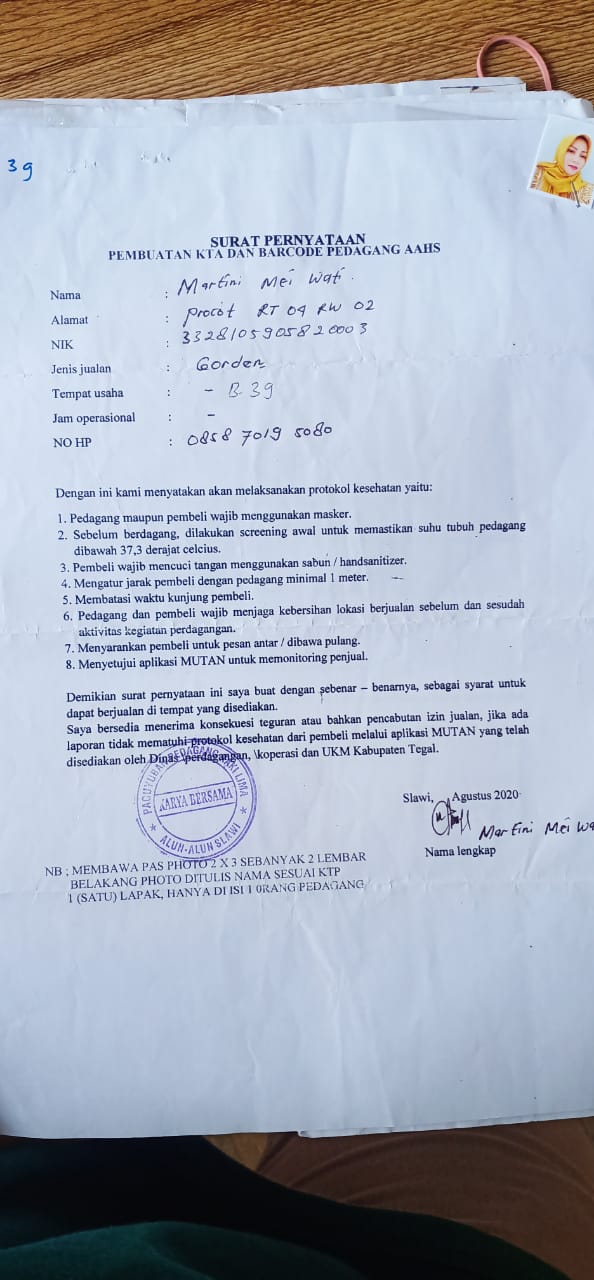 39
SURAT PERNYATAAN
PEMBUATAN KTA DAN BARCODE PEDAGANG AAHS
Nama : Martini Mei Wati.
Alamat : Procot RT 04 RW 02
NIK : 3328105905820003
Jenis jualan : Gorden
Tempat usaha : - B 39
Jam operasional : -
NO HP : 0858 7019 5080
Dengan ini kami menyatakan akan melaksanakan protokol kesehatan yaitu:
1. Pedagang maupun pembeli wajib menggunakan masker.
2. Sebelum berdagang, dilakukan screening awal untuk memastikan suhu tubuh pedagang
dibawah 37,3 derajat celcius.
3. Pembeli wajib mencuci tangan menggunakan sabun / handsanitizer.
4. Mengatur jarak pembeli dengan pedagang minimal 1 meter.
5. Membatasi waktu kunjung pembeli.
6. Pedagang dan pembeli wajib menjaga kebersihan lokasi berjualan sebelum dan sesudah
aktivitas kegiatan perdagangan.
7. Menyarankan pembeli untuk pesan antar / dibawa pulang.
8. Menyetujui aplikasi MUTAN untuk memonitoring penjual.
Demikian surat pernyataan ini saya buat dengan sebenar – benarnya, sebagai syarat untuk
dapat berjualan di tempat yang disediakan.
Saya bersedia menerima konsekuesi teguran atau bahkan pencabutan izin jualan, jika ada
laporan tidak mematuhi protokol kesehatan dari pembeli melalui aplikasi MUTAN yang telah
disediakan oleh Dinas \perdagangan, \koperasi dan UKM Kabupaten Tegal.
PAGUYUBAN PEDAGANG KAKI LIMA
KARYA BERSAMA
ALUN-ALUN SLAWI
Slawi, Agustus 2020
Martini Mei Wa
Nama lengkap
NB ; MEMBAWA PAS PHOTO 2 X 3 SEBANYAK 2 LEMBAR
BELAKANG PHOTO DITULIS NAMA SESUAI KTP
1 (SATU) LAPAK, HANYA DI ISI 1 0RANG PEDAGANG